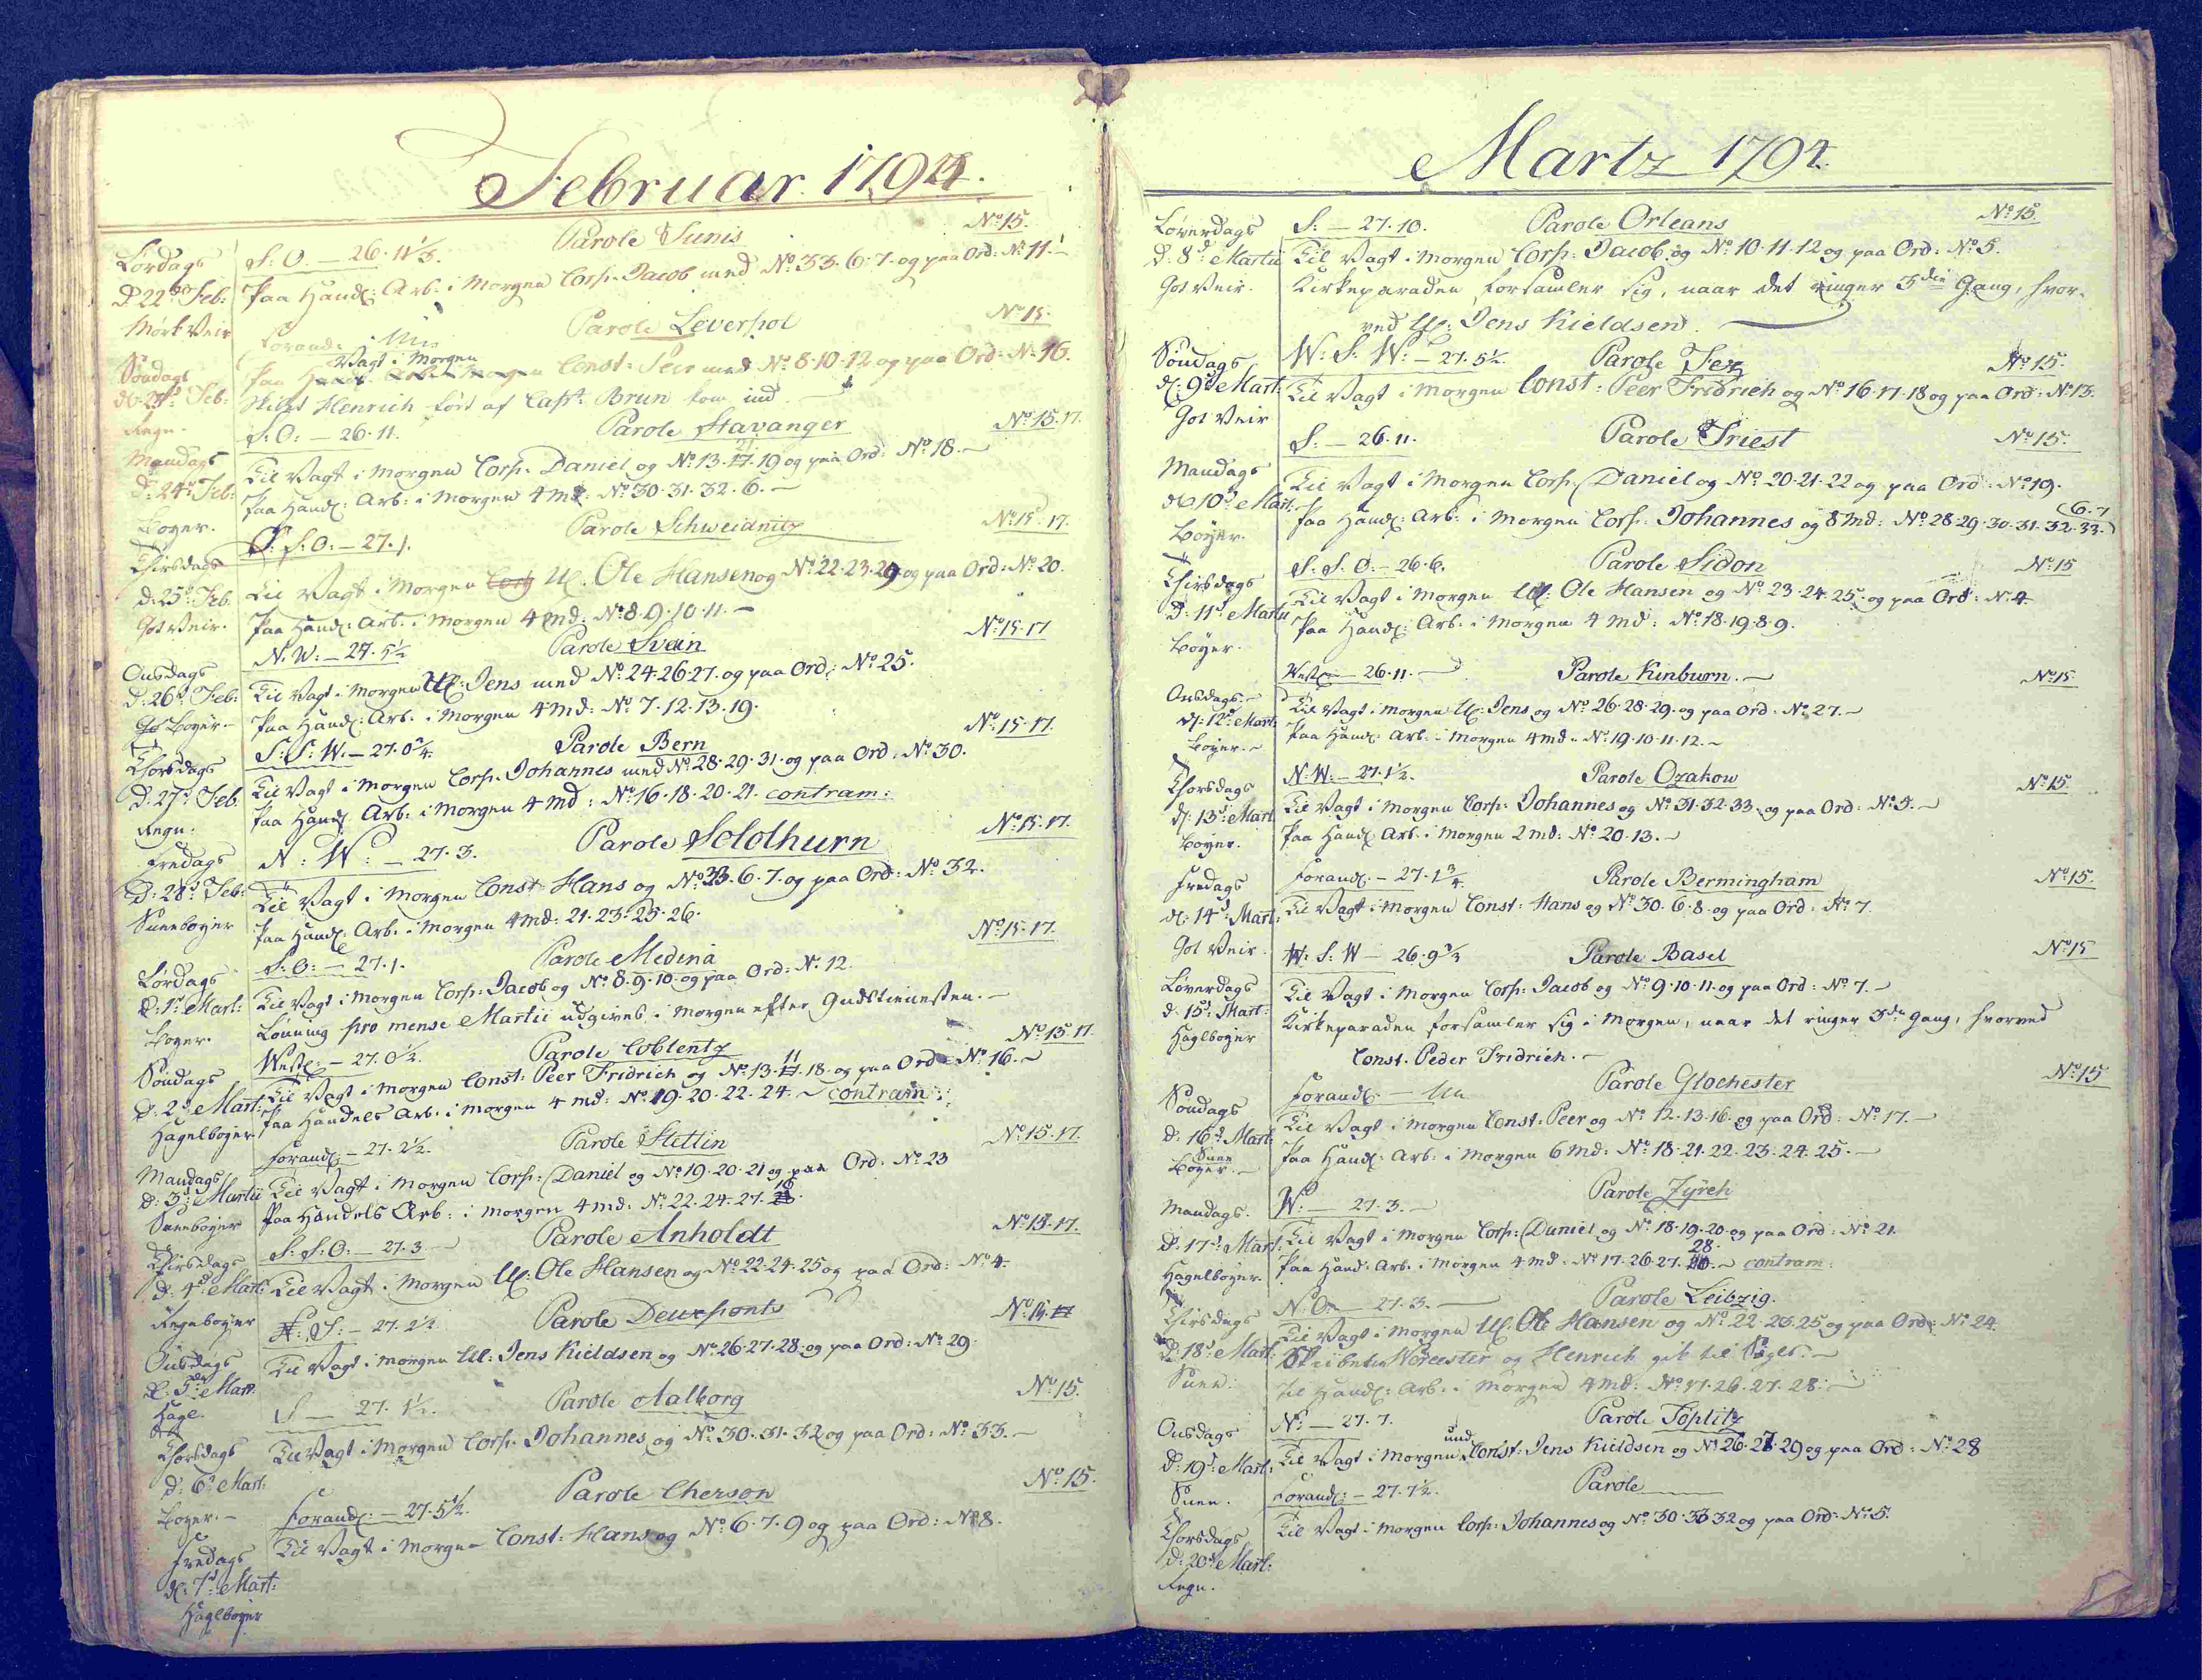 Februar 1794.
Lørdags S: O. — 26. 11⅓. Parole Tunis No 15.
d 22de Feb: Paa Handl: Arb. i Morgen Corp. Jacob med No 33. 6. 7. og paa Ord: No 11.
Mørk Veir
Forandl: Parole Leverpol No 15.
Søndags Paa Vagt i Morgen Const: Peer med No 8. 10. 12 og paa Ord: No 16.
d. 23d Feb: Skibet Henrich ført af Capt. Brun kom ind.
Regn. S: O: — 26. 11. Parole Stavanger No 15. 17.
Mandags Til Vagt i Morgen Corp. Daniel og No 13. 19 og paa Ord: No 18.
d. 24d Feb: Paa Handl: Arb: i Morgen 4 Md: No 30. 31. 32. 6.
Bøyer. S: S: O: — 27. 1. Parole Schweidnitz No 15. 17.
Thirsdags Til Vagt i Morgen Uf. Ole Hansen og No 22. 23. 29 og paa Ord: No 20.
d: 25d Feb. Paa Handl: Arb. i Morgen 4 Md: No 8. 9. 10. 11.
Got Veir. N. W: — 27. 5½ Parole Svain No 15. 17
Onsdags Til Vagt i Morgen Uf: Jens med No 24. 26. 27. og paa Ord: No 25.
d: 26d Feb: Paa Handl: Arb. i Morgen 4 Md: No 7. 12. 13. 19.
Bøyer S: S: W. — 27. 0¾ Parole Bern No 15. 17.
Thorsdags Til Vagt i Morgen Corp. Johannes med No 28. 29. 31. og paa Ord: No 30.
d. 27d Feb. Paa Handl Arb. i Morgen 4 Md: No 16. 18. 20. 21. contram:
Regn.
Fredags N: W: — 27. 3. Parole Solothurn No 15. 17.
d: 28d Feb: Til Vagt i Morgen Const Hans og No 33. 6. 7. og paa Ord: No 32.
Sneebøyer Paa Handl: Arb. i Morgen 4 Md: 21. 23. 25. 26.
S: O: — 27. 1. Parole Medina No 15. 17.
Lørdags Til Vagt i Morgen Corp: Jacob og No 8. 9. 10 og paa Ord: No 12.
d: 1d Mart: Lønning pro mense Martii udgives i Morgen efter Gudstienesten.
Bøyer. Westl. — 27. 0½. Parole Coblentz No 15 17
Søndags Til Vagt i Morgen Const: Peer Fridrich og No 13. 11. 18. og paa Ord No 16.
d. 2d Mart: Paa Handels Arb. i Morgen 4 Md: No 19. 20. 22. 24. contram:
Hagelbøyer Forandl: — 27. 2½. Parole Stettin No 15. 17.
Mandags Til Vagt i Morgen Corp: Daniel og No 19. 20. 21 og paa Ord: No 23
d: 3d Martii Paa Handels Arb: i Morgen 4 Md: No 22. 24. 27.
Sneebøyer S: S: O: — 27. 3. Parole Anholdt No 15. 17.
Thirsdags Til Vagt i Morgen Uf: Ole Hansen og No 22. 24. 25 og paa Ord: No 4.
d. 4d Mart:
Regnbøyer S: — 27. 2½ Parole Deuxponts No 15.
Onsdags Til Vagt i Morgen Uf: Jens Kieldsen og No 26. 27. 28. og paa Ord: No 29.
d. 5d Mart.
Hagl. S — 27. 1½. Parole Aalborg No 15.
Thorsdags Til Vagt i Morgen Corp. Johannes og No 30. 31. 32 og paa Ord: No 33.
d: 6d Mart:
Bøyer. Forandl: — 27. 5½. Parole Cherson No 15.
Fredags Til Vagt i Morgen Const: Hans og No 6. 7. 9 og paa Ord: No 8.
d: 7d Mart:
Haglbøyer
Martz 1794.
Løverdags S. — 27. 10. Parole Orleans No 15.
d: 8d Martii Til Vagt i Morgen Corp: Jacob og No 10. 11. 12 og paa Ord: No 5.
Got Veir. Kirkeparaden forsamler sig, naar det ringer 3die Gang, hvor-
ved Uf: Jens Kieldsen.
Søndags W: S: W: — 27. 5½. Parole Fez No 15.
d: 9d Mart: Til Vagt i Morgen Const: Peer Fridrich og No 16. 17. 18 og paa Ord: No 13.
Got Veir S. — 26. 11. Parole Triest No 15.
Mandags Til Vagt i Morgen Corp. Daniel og No 20. 21. 22 og paa Ord: No 19.
d 10d Mart: Paa Handl: Arb: i Morgen Corp. Johannes og 8 Md: No 28. 29. 30. 31. 32. 33. 6. 7
Bøyer. S. S. O. — 26. 6. Parole Sidon No 15
Thirsdags Til Vagt i Morgen Uf: Ole Hansen og No 23. 24. 25 og paa Ord: No 4
d: 11d Martii Paa Handl: Arb. i Morgen 4 Md: No 18. 19. 8. 9.
Bøyer. Westl — 26. 11. Parole Kinburn. No 15
Onsdags Til Vagt i Morgen Uf: Jens og No 26. 28. 29. og paa Ord: No 27.
d: 12d Mart: Paa Handl: Arb. i Morgen 4 Md. No 19. 10. 11. 12.
Bøyer. N. W: — 27. 1½. Parole Ozakow No 15
Thorsdags Til Vagt i Morgen Corp: Johannes og No 31. 32. 33. og paa Ord: No 4.
d: 13d Mart Paa Handl Arb. i Morgen 2 Md: No 20. 13.
Bøyer.
Fredags Forandl. — 27. 1¾. Parole Bermingham No 15.
d: 14d Mart: Til Vagt i Morgen Const: Hans og No 30. 6. 8. og paa Ord: No 7
Got Veir. W: S: W — 26. 9 Parole Basel No 15
Løverdags Til Vagt i Morgen Corp: Jacob og No 9. 10. 11. og paa Ord: No 7.
d. 15d Mart: Kirkeparaden forsamler sig i Morgen, naar det ringer 3die Gang, hvorved
Haglbøyer Const. Peder Fridrich.
Søndags Forandl: Parole Glochester No 15
d: 16d Mart: Til Vagt i Morgen Const: Peer og No 12. 13. 16. og paa Ord: No 17.
Snee Bøyer. Paa Handl: Arb: i Morgen 6 Md: No 18. 21. 22. 23. 24. 25.
Mandags. W: — 27. 3. Parole Zyrch
d: 17d Mart: Til Vagt i Morgen Corp: Daniel og No 18. 19. 20 og paa Ord: No 21.
Hagelbøyer. Paa Handl. Arb. i Morgen 4 Md: No 17. 26. 27. 28. contram:
Thirsdags N. O. — 27. 3. Parole Leibzig.
d: 18d Mart: Til Vagt i Morgen Uf. Ole Hansen og No 22. 23. 25 og paa Ord: No 24.
Snee. Worcester og Henrich gik til Seyls.
til Handl: Arb: i Morgen 4 Md: No 17. 26. 27. 28.
Onsdags N: — 27. 7. Parole Töplitz
d: 19d Mart: Til Vagt i Morgen und Const: Jens Kieldsen og No 26. 27. 29 og paa Ord: No 28
Snee. Forandl: — 27. 7½. Parole
Thorsdags Til Vagt i Morgen Corp: Johannes og No 30. 32 og paa Ord: No 5.
d: 20d Mart:
Regn.